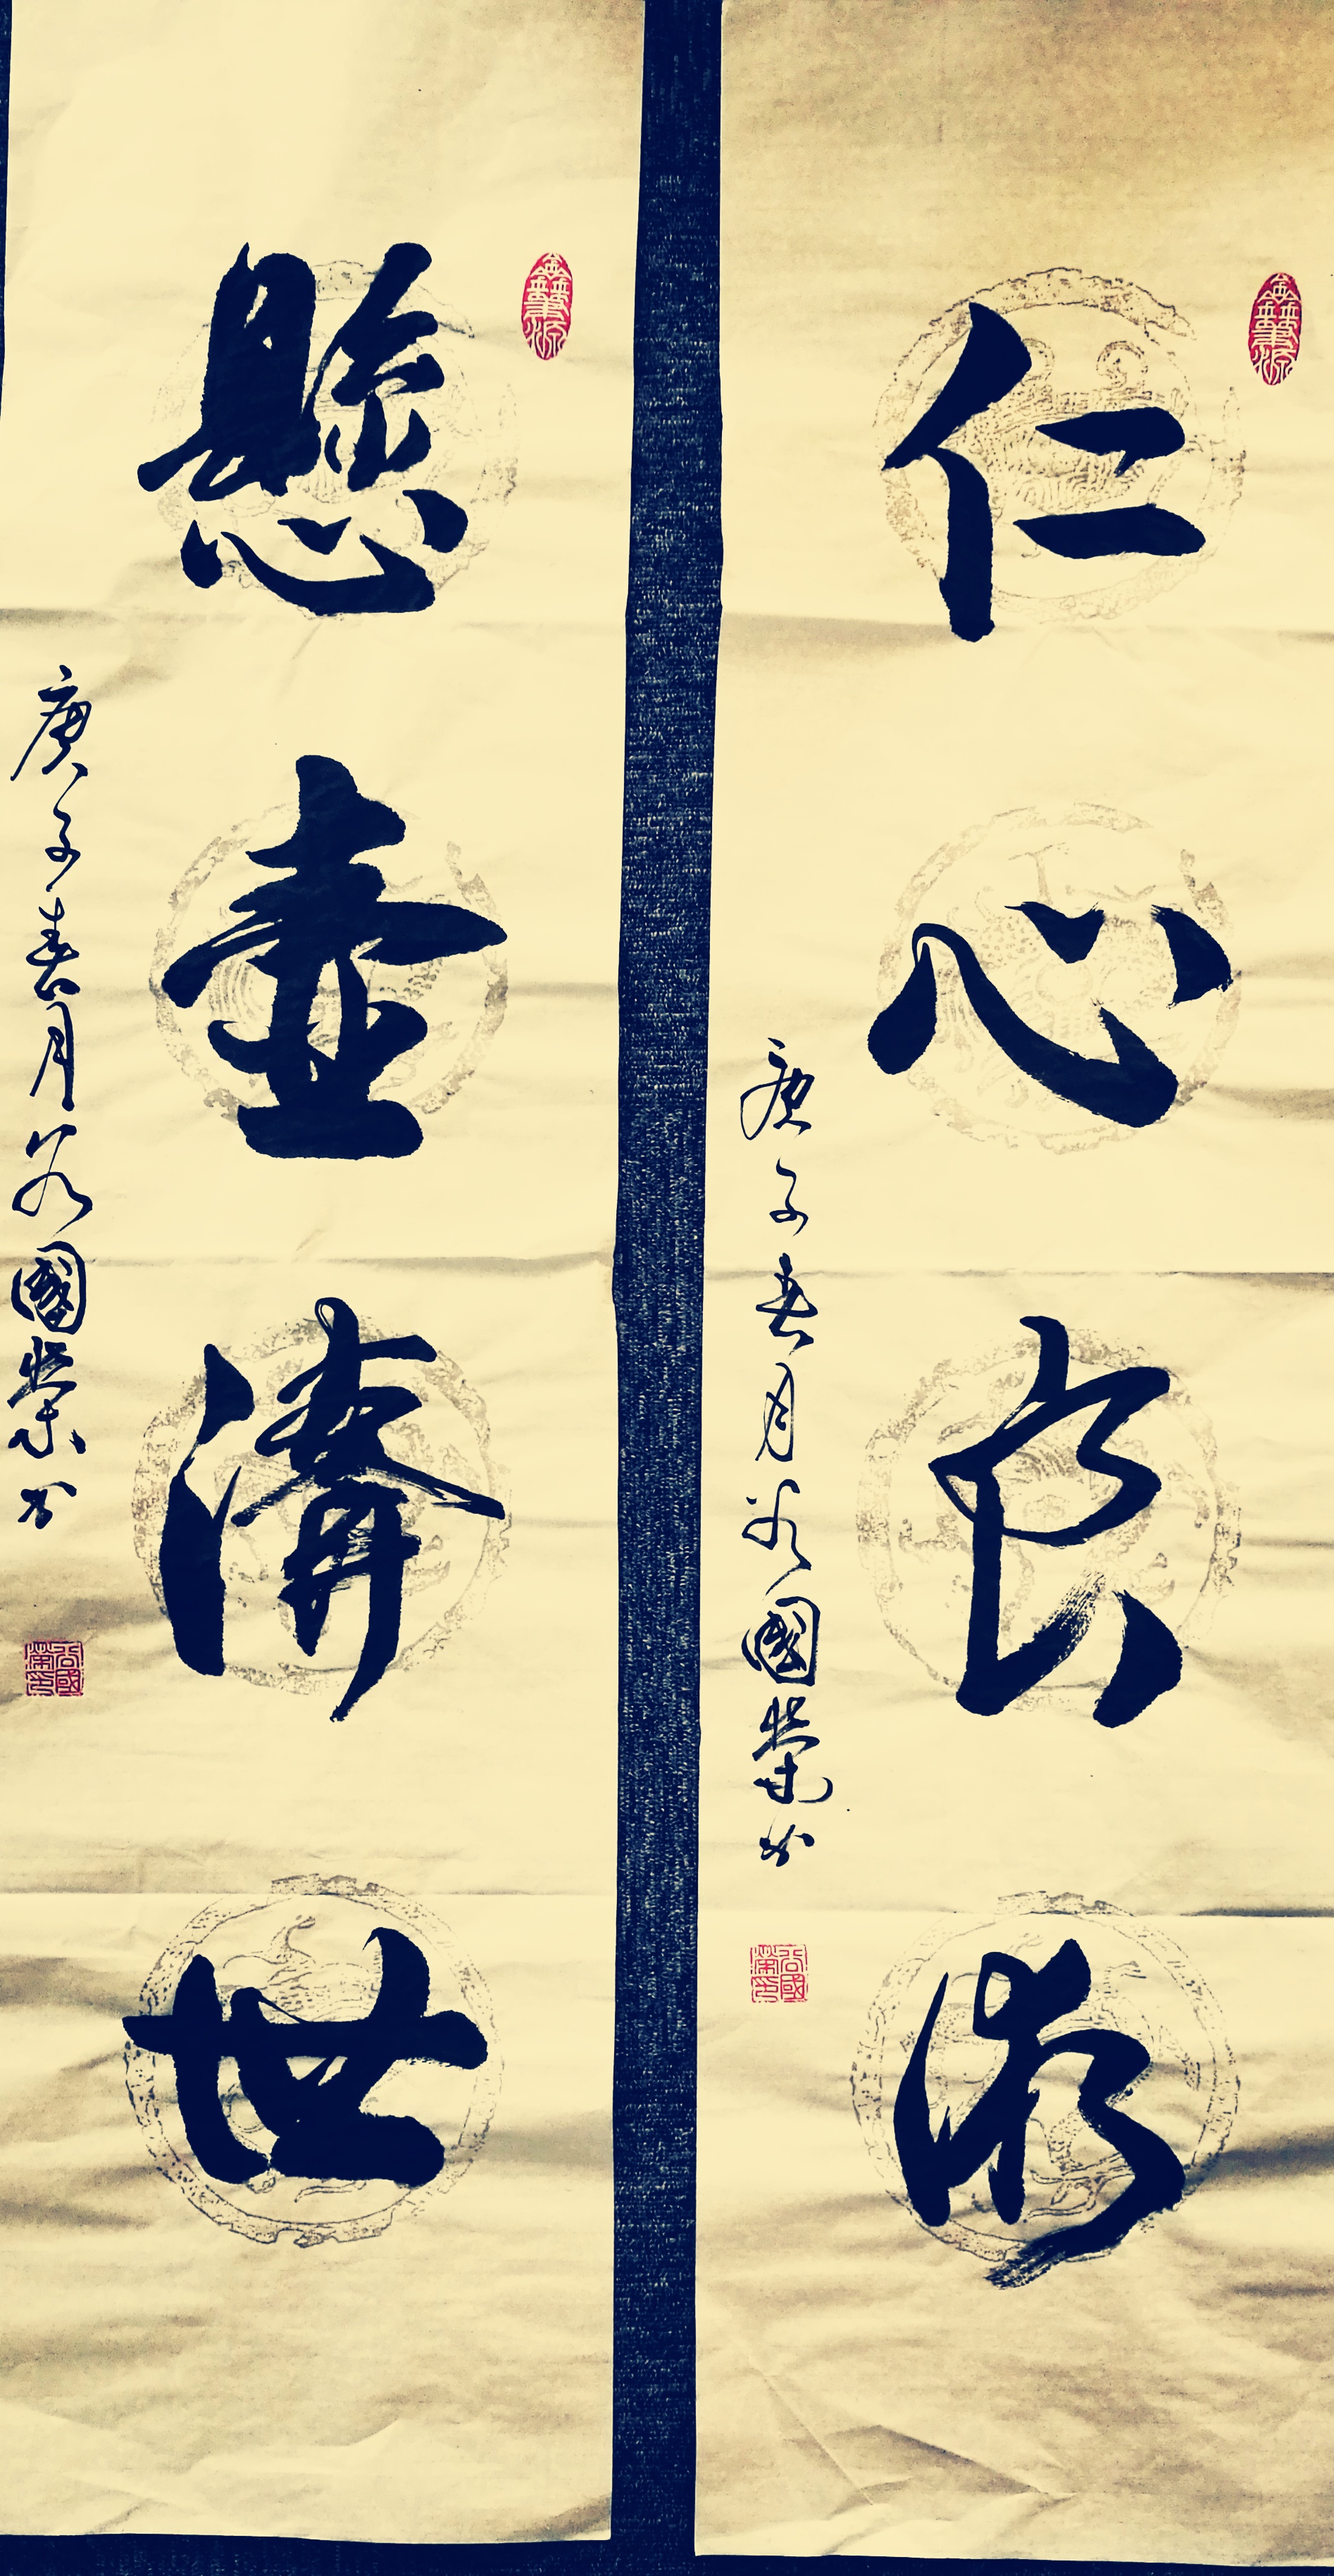 仁心良術
庚子春月谷國榮書
懸壺濟世
庚子春月谷國榮書